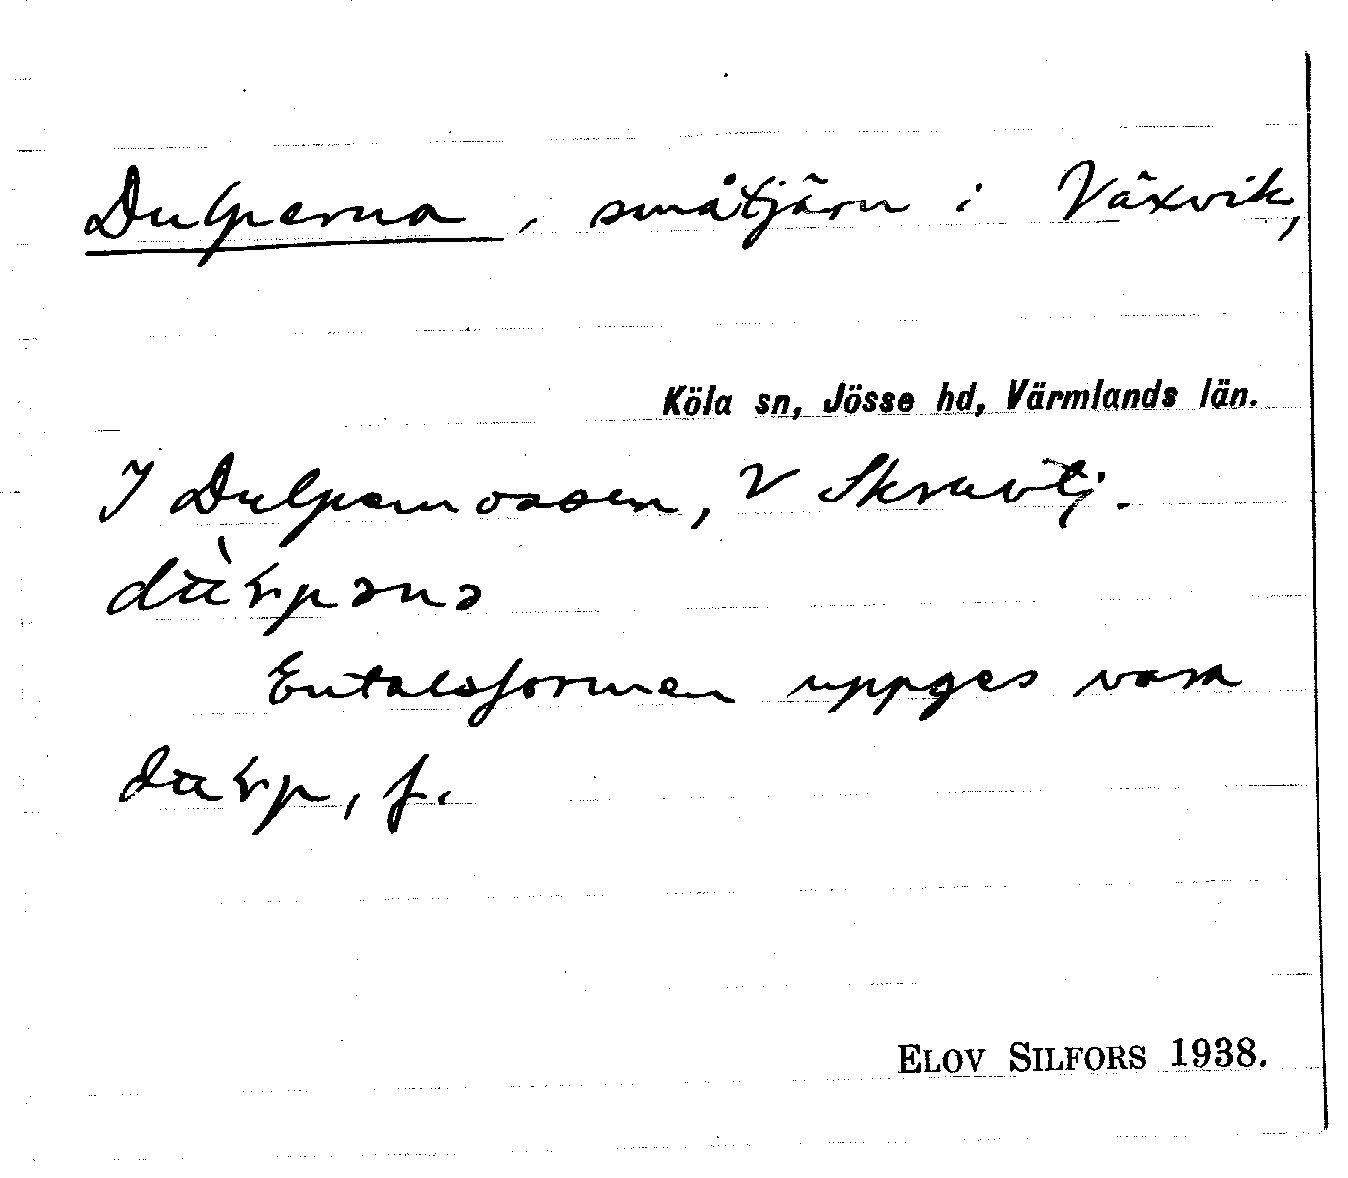 Dulperna, småtjärn i Växvik,
Köla sn, Jösse hd, Värmlands län.
I Dulpemossen, V Skruvtj.
Entalsformen uppges vara
f.
ELOV SILFORS 1938.